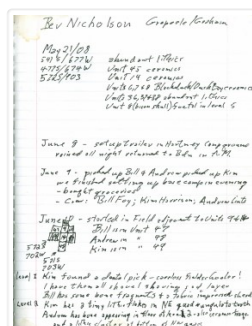 Bev Nicholson Gra Gersham
May 21/08
541S/677W abundant lithics
477S/674W Unit 45 ceramics
572S/703 Unit 14 ceramics
Units 67&8 Blackduck/Duck Bay ceramics
Units abundant lithics
Unit 8 (burn shell) Gastil in level 5
June 8 - set up trailer in Hartney Campground
rained all night returned to Bdn in A.M.
June 9 - picked up Bill & Andrew picked up Kim
we finished setting up base camp in evening
- bought groceries
- Crew: Bill Foy; Kim Harrison; Andrew Lints
June - started in Field adjacent to Units
Bill in Unit 47
Andrew in 48
Kim in 49
572S
702W
571S
703W
Level 1 Kim found a dental pick - careless Fielder Crew!
I have them all shovel shining sod layer
Bill has some bone fragments & fabric impressed sherd
Level 2 Kim has 2 tiny lithic flakes in NE quad + ungulate tooth
Andrew has bone appearing in three
and a lithic cluster at bottom of